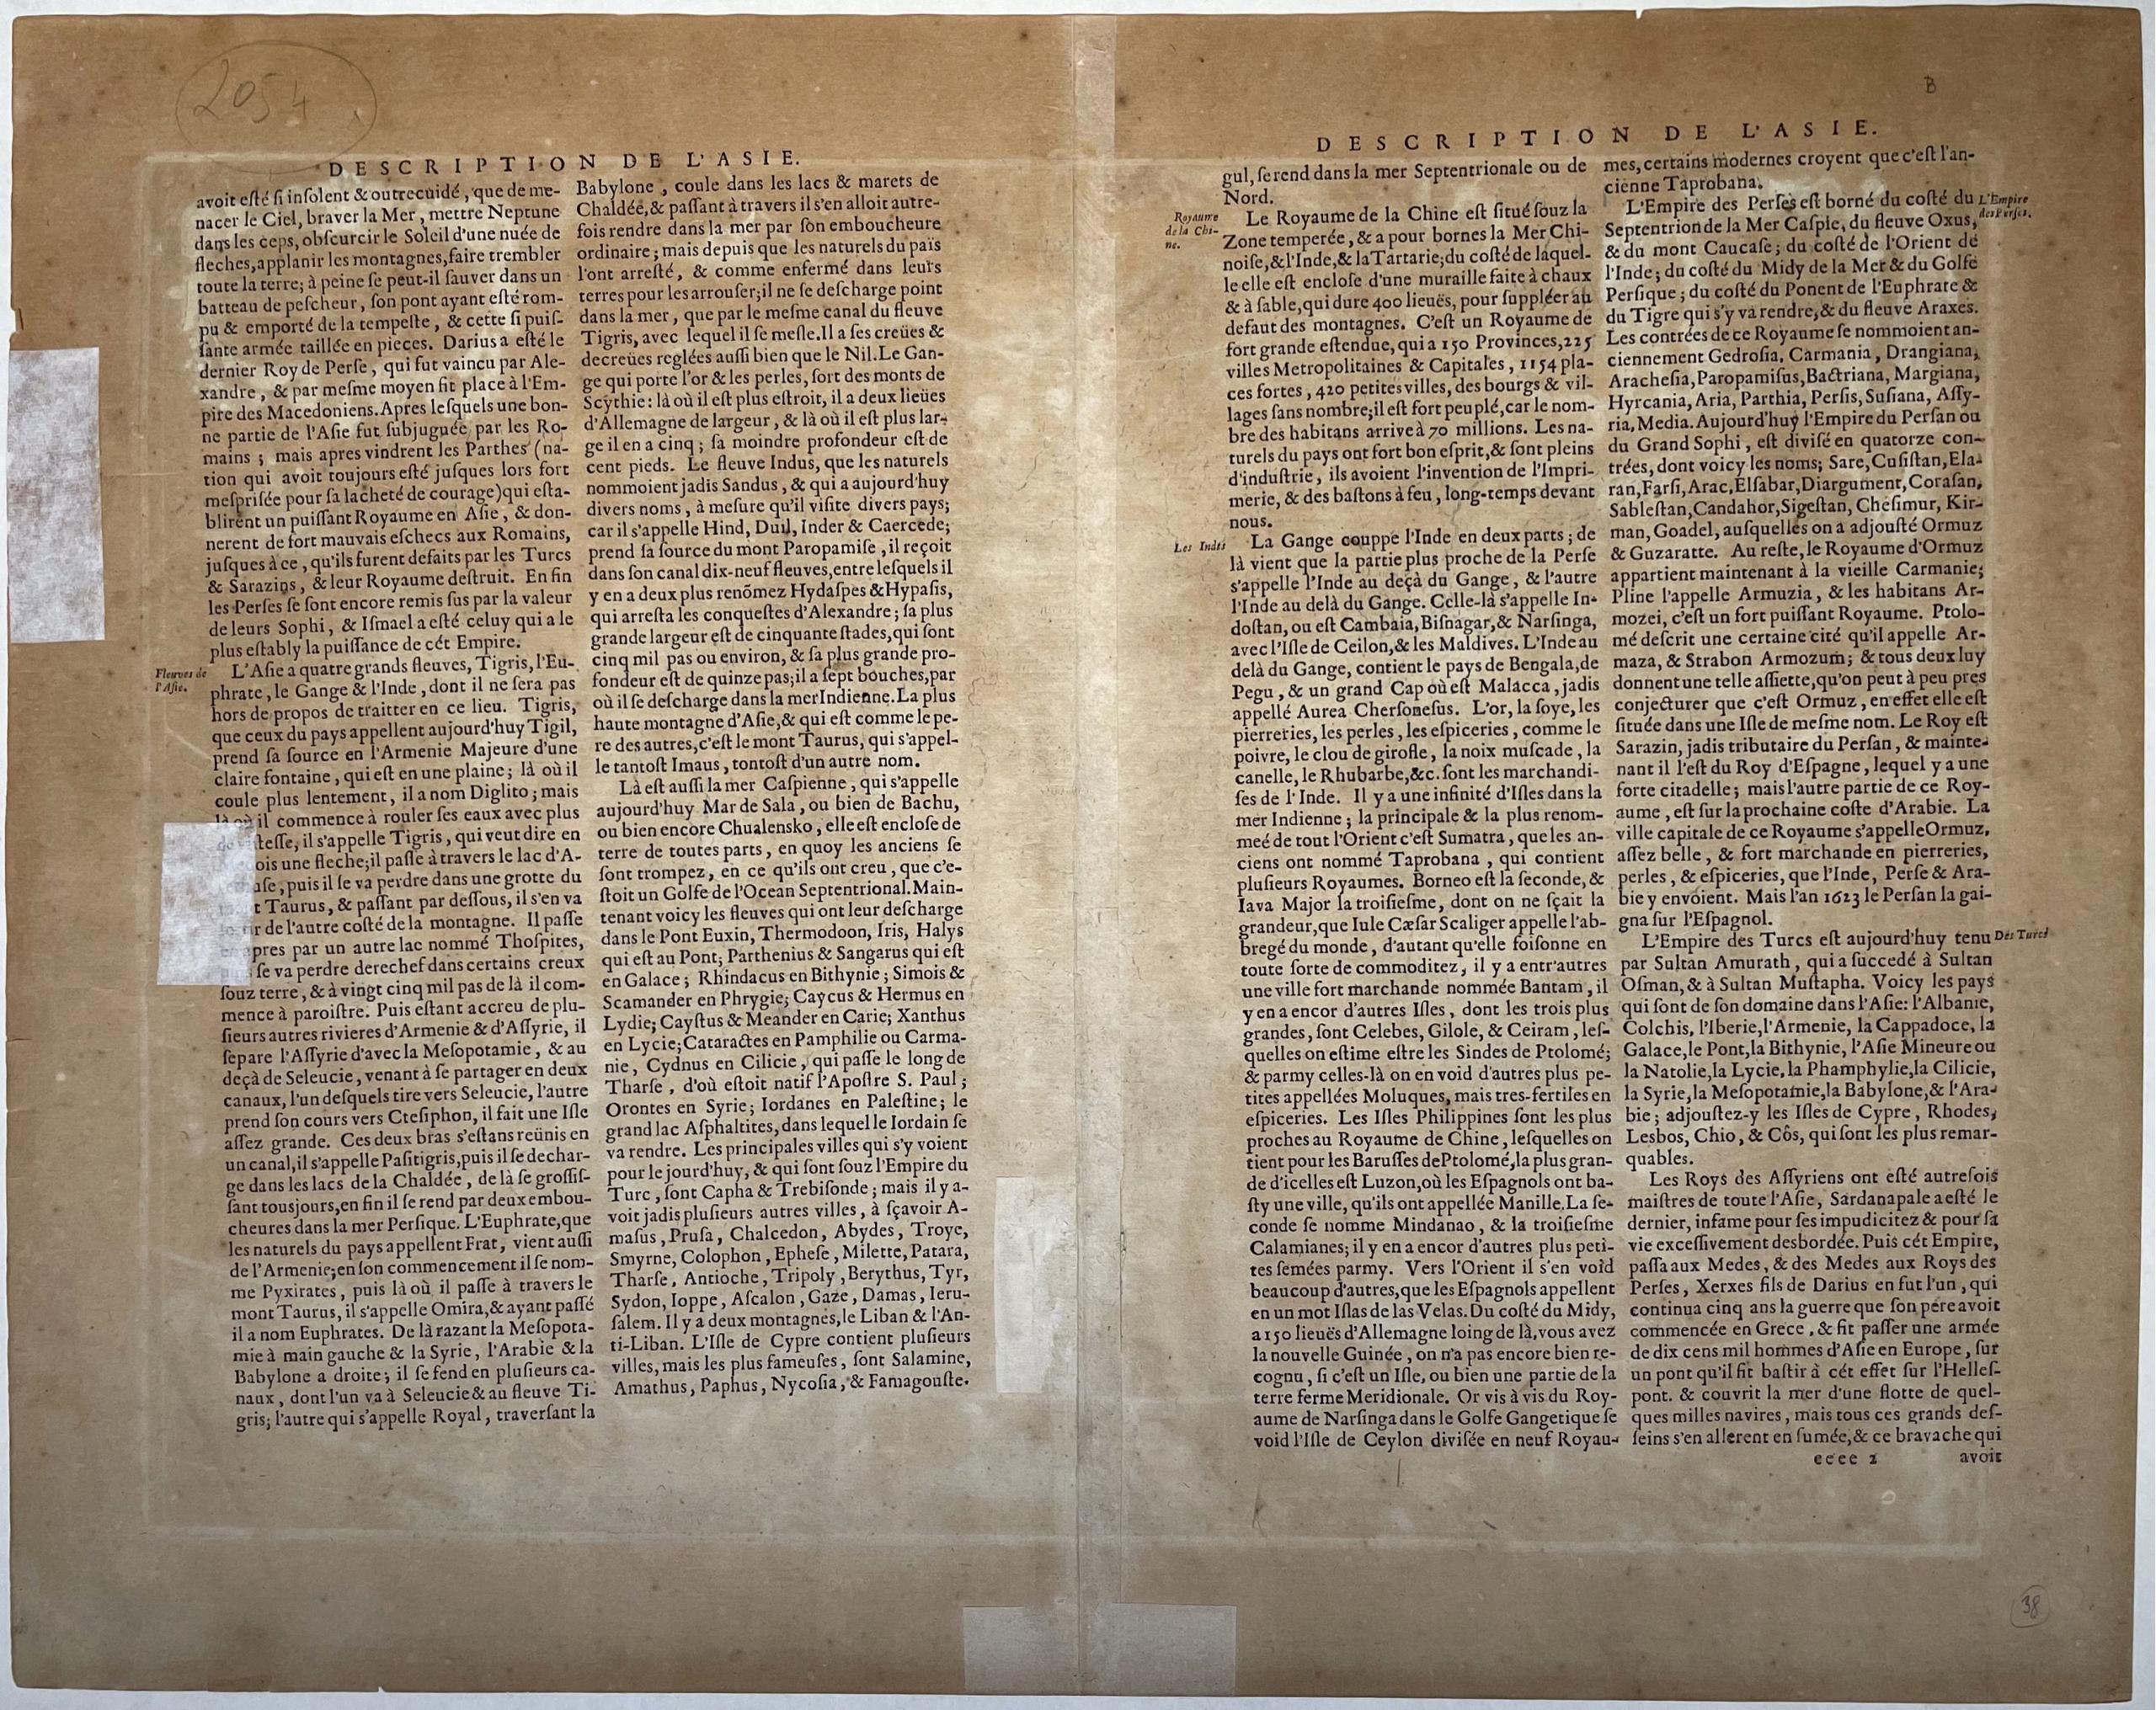 2054
DESCRIPTION DE L'ASIE.
avoit eſté ſi inſolent & outrecuidé, que de me-
nacer le Ciel, braver la Mer, mettre Neptune
dans les ceps, obſcurcir le Soleil d'une nuée de
fleches, applanir les montagnes, faire trembler
toute la terre; à peine ſe peut-il ſauver dans un
batteau de peſcheur, ſon pont ayant eſté rom-
pu & emporté de la tempeſte, & cette ſi puiſ-
ſante armée taillée en pieces. Darius a eſté le
dernier Roy de Perſe, qui fut vaincu par Ale-
xandre, & par meſme moyen fit place à l'Em-
pire des Macedoniens. Apres leſquels une bon-
ne partie de l'Aſie fut ſubjuguée par les Ro-
mains; mais apres vindrent les Parthes (na-
tion qui avoit toujours eſté juſques lors fort
meſpriſée pour ſa lacheté de courage) qui eſta-
blirent un puiſſant Royaume en Aſie, & don-
nerent de fort mauvais eſchecs aux Romains,
juſques à ce, qu'ils furent defaits par les Turcs
& Sarazins, & leur Royaume deſtruit. En fin
les Perſes ſe ſont encore remis ſus par la valeur
de leurs Sophi, & Iſmael a eſté celuy qui a le
plus eſtably la puiſſance de cét Empire.
Fleuves de
l'Aſie.
L'Aſie a quatre grands fleuves, Tigris, l'Eu-
phrate, le Gange & l'Inde, dont il ne ſera pas
hors de propos de traitter en ce lieu. Tigris,
que ceux du pays appellent aujourd'huy Tigil,
prend ſa ſource en l'Armenie Majeure d'une
claire fontaine, qui eſt en une plaine; là où il
coule plus lentement, il a nom Diglito; mais
là où il commence à rouler ſes eaux avec plus
de viteſſe, il s'appelle Tigris, qui veut dire en
ois une fleche; il paſſe à travers le lac d'A-
uſe, puis il ſe va perdre dans une grotte du
t Taurus, & paſſant par deſſous, il s'en va
ir de l'autre coſté de la montagne. Il paſſe
apres par un autre lac nommé Thoſpites,
ſe va perdre derechef dans certains creux
ſouz terre, & à vingt cinq mil pas de là il com-
mence à paroiſtre. Puis eſtant accreu de plu-
ſieurs autres rivieres d'Armenie & d'Aſſyrie, il
ſepare l'Aſſyrie d'avec la Meſopotamie, & au
deçà de Seleucie, venant à ſe partager en deux
canaux, l'un deſquels tire vers Seleucie, l'autre
prend ſon cours vers Cteſiphon, il fait une Iſle
aſſez grande. Ces deux bras s'eſtans reünis en
un canal, il s'appelle Paſitigris, puis il ſe dechar-
ge dans les lacs de la Chaldée, de là ſe groſſiſ-
ſant tousjours, en fin il ſe rend par deux embou-
cheures dans la mer Perſique. L'Euphrate, que
les naturels du pays appellent Frat, vient auſſi
de l'Armenie; en ſon commencement il ſe nom-
me Pyxirates, puis là où il paſſe à travers le
mont Taurus, il s'appelle Omira, & ayant paſſé
il a nom Euphrates. De là razant la Meſopota-
mie à main gauche & la Syrie, l'Arabie & la
Babylone a droite; il ſe fend en pluſieurs ca-
naux, dont l'un va à Seleucie & au fleuve Ti-
gris; l'autre qui s'appelle Royal, traverſant la
Babylone, coule dans les lacs & marets de
Chaldée, & paſſant à travers il s'en alloit autre-
fois rendre dans la mer par ſon emboucheure
ordinaire; mais depuis que les naturels du païs
l'ont arreſté, & comme enfermé dans leurs
terres pour les arrouſer; il ne ſe deſcharge point
dans la mer, que par le meſme canal du fleuve
Tigris, avec lequel il ſe meſle. Il a ſes creües &
decreües reglées auſſi bien que le Nil. Le Gan-
ge qui porte l'or & les perles, ſort des monts de
Scythie: là où il eſt plus eſtroit, il a deux lieües
d'Allemagne de largeur, & là où il eſt plus lar-
ge il en a cinq; ſa moindre profondeur eſt de
cent pieds. Le fleuve Indus, que les naturels
nommoient jadis Sandus, & qui a aujourd'huy
divers noms, à meſure qu'il viſite divers pays;
car il s'appelle Hind, Duil, Inder & Caercede;
prend ſa ſource du mont Paropamiſe, il reçoit
dans ſon canal dix-neuf fleuves, entre leſquels il
y en a deux plus renõmez Hydaſpes & Hypaſis,
qui arreſta les conqueſtes d'Alexandre; ſa plus
grande largeur eſt de cinquante ſtades, qui ſont
cinq mil pas ou environ, & ſa plus grande pro-
fondeur eſt de quinze pas; il a ſept bouches, par
où il ſe deſcharge dans la mer Indienne. La plus
haute montagne d'Aſie, & qui eſt comme le pe-
re des autres, c'eſt le mont Taurus, qui s'appel-
le tantoſt Imaus, tontoſt d'un autre nom.
Là eſt auſſi la mer Caſpienne, qui s'appelle
aujourd'huy Mar de Sala, ou bien de Bachu,
ou bien encore Chualensko, elle eſt encloſe de
terre de toutes parts, en quoy les anciens ſe
ſont trompez, en ce qu'ils ont creu, que c'e-
ſtoit un Golfe de l'Ocean Septentrional. Main-
tenant voicy les fleuves qui ont leur deſcharge
dans le Pont Euxin, Thermodoon, Iris, Halys
qui eſt au Pont; Parthenius & Sangarus qui eſt
en Galace; Rhindacus en Bithynie; Simois &
Scamander en Phrygie; Caycus & Hermus en
Lydie; Cayſtus & Meander en Carie; Xanthus
en Lycie; Cataractes en Pamphilie ou Carma-
nie, Cydnus en Cilicie, qui paſſe le long de
Tharſe, d'où eſtoit natif l'Apoſtre S. Paul;
Orontes en Syrie; Iordanes en Paleſtine; le
grand lac Aſphaltites, dans lequel le Iordain ſe
va rendre. Les principales villes qui s'y voient
pour le jourd'huy, & qui ſont ſouz l'Empire du
Turc, ſont Capha & Trebiſonde; mais il y a-
voit jadis pluſieurs autres villes, à ſçavoir A-
maſus, Pruſa, Chalcedon, Abydes, Troye,
Smyrne, Colophon, Epheſe, Milette, Patara,
Tharſe, Antioche, Tripoly, Berythus, Tyr,
Sydon, Ioppe, Aſcalon, Gaze, Damas, Ieru-
ſalem. Il y a deux montagnes, le Liban & l'An-
ti-Liban. L'Iſle de Cypre contient pluſieurs
villes, mais les plus fameuſes, ſont Salamine,
Amathus, Paphus, Nycoſia, & Famagouſte.
B
DESCRIPTION DE L'ASIE.
gul, ſe rend dans la mer Septentrionale ou de
Nord.
Royaume
de la Chi-
ne.
Le Royaume de la Chine eſt ſitué ſouz la
Zone temperée, & a pour bornes la Mer Chi-
noiſe, & l'Inde, & la Tartarie; du coſté de laquel-
le elle eſt encloſe d'une muraille faite à chaux
& à ſable, qui dure 400 lieuës, pour ſuppléer au
defaut des montagnes. C'eſt un Royaume de
fort grande eſtendue, qui a 150 Provinces, 225
villes Metropolitaines & Capitales, 1154 pla-
ces fortes, 420 petites villes, des bourgs & vil-
lages ſans nombre; il eſt fort peuplé, car le nom-
bre des habitans arrive à 70 millions. Les na-
turels du pays ont fort bon eſprit, & ſont pleins
d'induſtrie, ils avoient l'invention de l'Impri-
merie, & des baſtons à feu, long-temps devant
nous.
Les Indes
La Gange couppe l'Inde en deux parts; de
là vient que la partie plus proche de la Perſe
s'appelle l'Inde au deçà du Gange, & l'autre
l'Inde au delà du Gange. Celle-là s'appelle In-
doſtan, ou eſt Cambaia, Biſnagar, & Narſinga,
avec l'Iſle de Ceilon, & les Maldives. L'Inde au
delà du Gange, contient le pays de Bengala, de
Pegu, & un grand Cap où eſt Malacca, jadis
appellé Aurea Cherſoneſus. L'or, la ſoye, les
pierreries, les perles, les eſpiceries, comme le
poivre, le clou de girofle, la noix muſcade, la
canelle, le Rhubarbe, &c. ſont les marchandi-
ſes de l'Inde. Il y a une infinité d'Iſles dans la
mer Indienne; la principale & la plus renom-
meé de tout l'Orient c'eſt Sumatra, que les an-
ciens ont nommé Taprobana, qui contient
pluſieurs Royaumes. Borneo eſt la ſeconde, &
Iava Major la troiſieſme, dont on ne ſçait la
grandeur, que Iule Cæſar Scaliger appelle l'ab-
bregé du monde, d'autant qu'elle foiſonne en
toute ſorte de commoditez, il y a entr'autres
une ville fort marchande nommée Bantam, il
y en a encor d'autres Iſles, dont les trois plus
grandes, ſont Celebes, Gilole, & Ceiram, leſ-
quelles on eſtime eſtre les Sindes de Ptolomé;
& parmy celles-là on en void d'autres plus pe-
tites appellées Moluques, mais tres-fertiles en
eſpiceries. Les Iſles Philippines ſont les plus
proches au Royaume de Chine, leſquelles on
tient pour les Baruſſes de Ptolomé, la plus gran-
de d'icelles eſt Luzon, où les Eſpagnols ont ba-
ſty une ville, qu'ils ont appellée Manille. La ſe-
conde ſe nomme Mindanao, & la troiſieſme
Calamianes; il y en a encor d'autres plus peti-
tes ſemées parmy. Vers l'Orient il s'en void
beaucoup d'autres, que les Eſpagnols appellent
en un mot Iſlas de las Velas. Du coſté du Midy,
a 150 lieuës d'Allemagne loing de là, vous avez
la nouvelle Guinée, on n'a pas encore bien re-
cognu, ſi c'eſt un Iſle, ou bien une partie de la
terre ferme Meridionale. Or vis à vis du Roy-
aume de Narſinga dans le Golfe Gangetique ſe
void l'Iſle de Ceylon diviſée en neuf Royau-
mes, certains modernes croyent que c'eſt l'an-
cienne Taprobana.
L'Empire
des Perſes.
L'Empire des Perſes eſt borné du coſté du
Septentrion de la Mer Caſpie, du fleuve Oxus,
& du mont Caucaſe; du coſté de l'Orient de
l'Inde; du coſté du Midy de la Mer & du Golfe
Perſique; du coſté du Ponent de l'Euphrate &
du Tigre qui s'y va rendre, & du fleuve Araxes.
Les contrées de ce Royaume ſe nommoient an-
ciennement Gedroſia, Carmania, Drangiana,
Aracheſia, Paropamiſus, Bactriana, Margiana,
Hyrcania, Aria, Parthia, Perſis, Suſiana, Aſſy-
ria, Media. Aujourd'huy l'Empire du Perſan ou
du Grand Sophi, eſt diviſé en quatorze con-
trées, dont voicy les noms; Sare, Cuſiſtan, Ela-
ran, Farſi, Arac, Elſabar, Diargument, Coraſan,
Sableſtan, Candahor, Sigeſtan, Cheſimur, Kir-
man, Goadel, auſquelles on a adjouſté Ormuz
& Guzaratte. Au reſte, le Royaume d'Ormuz
appartient maintenant à la vieille Carmanie;
Pline l'appelle Armuzia, & les habitans Ar-
mozei, c'eſt un fort puiſſant Royaume. Ptolo-
mé deſcrit une certaine cité qu'il appelle Ar-
maza, & Strabon Armozum; & tous deux luy
donnent une telle aſſiette, qu'on peut à peu pres
conjecturer que c'eſt Ormuz, en effet elle eſt
ſituée dans une Iſle de meſme nom. Le Roy eſt
Sarazin, jadis tributaire du Perſan, & mainte-
nant il l'eſt du Roy d'Eſpagne, lequel y a une
forte citadelle; mais l'autre partie de ce Roy-
aume, eſt ſur la prochaine coſte d'Arabie. La
ville capitale de ce Royaume s'appelle Ormuz,
aſſez belle, & fort marchande en pierreries,
perles, & eſpiceries, que l'Inde, Perſe & Ara-
bie y envoient. Mais l'an 1623 le Perſan la gai-
gna ſur l'Eſpagnol.
Des Turcs
L'Empire des Turcs eſt aujourd'huy tenu
par Sultan Amurath, qui a ſuccedé à Sultan
Oſman, & à Sultan Muſtapha. Voicy les pays
qui ſont de ſon domaine dans l'Aſie: l'Albanie,
Colchis, l'Iberie, l'Armenie, la Cappadoce, la
Galace, le Pont, la Bithynie, l'Aſie Mineure ou
la Natolie, la Lycie, la Phamphylie, la Cilicie,
la Syrie, la Meſopotamie, la Babylone, & l'Ara-
bie; adjouſtez-y les Iſles de Cypre, Rhodes,
Lesbos, Chio, & Côs, qui ſont les plus remar-
quables.
Les Roys des Aſſyriens ont eſté autrefois
maiſtres de toute l'Aſie, Sardanapale a eſté le
dernier, infame pour ſes impudicitez & pour ſa
vie exceſſivement desbordée. Puis cét Empire,
paſſa aux Medes, & des Medes aux Roys des
Perſes, Xerxes fils de Darius en fut l'un, qui
continua cinq ans la guerre que ſon pere avoit
commencée en Grece, & fit paſſer une armée
de dix cens mil hommes d'Aſie en Europe, ſur
un pont qu'il fit baſtir à cét effet ſur l'Helleſ-
pont. & couvrit la mer d'une flotte de quel-
ques milles navires, mais tous ces grands deſ-
ſeins s'en allerent en fumée, & ce bravache qui
eeee 2 avoit
38